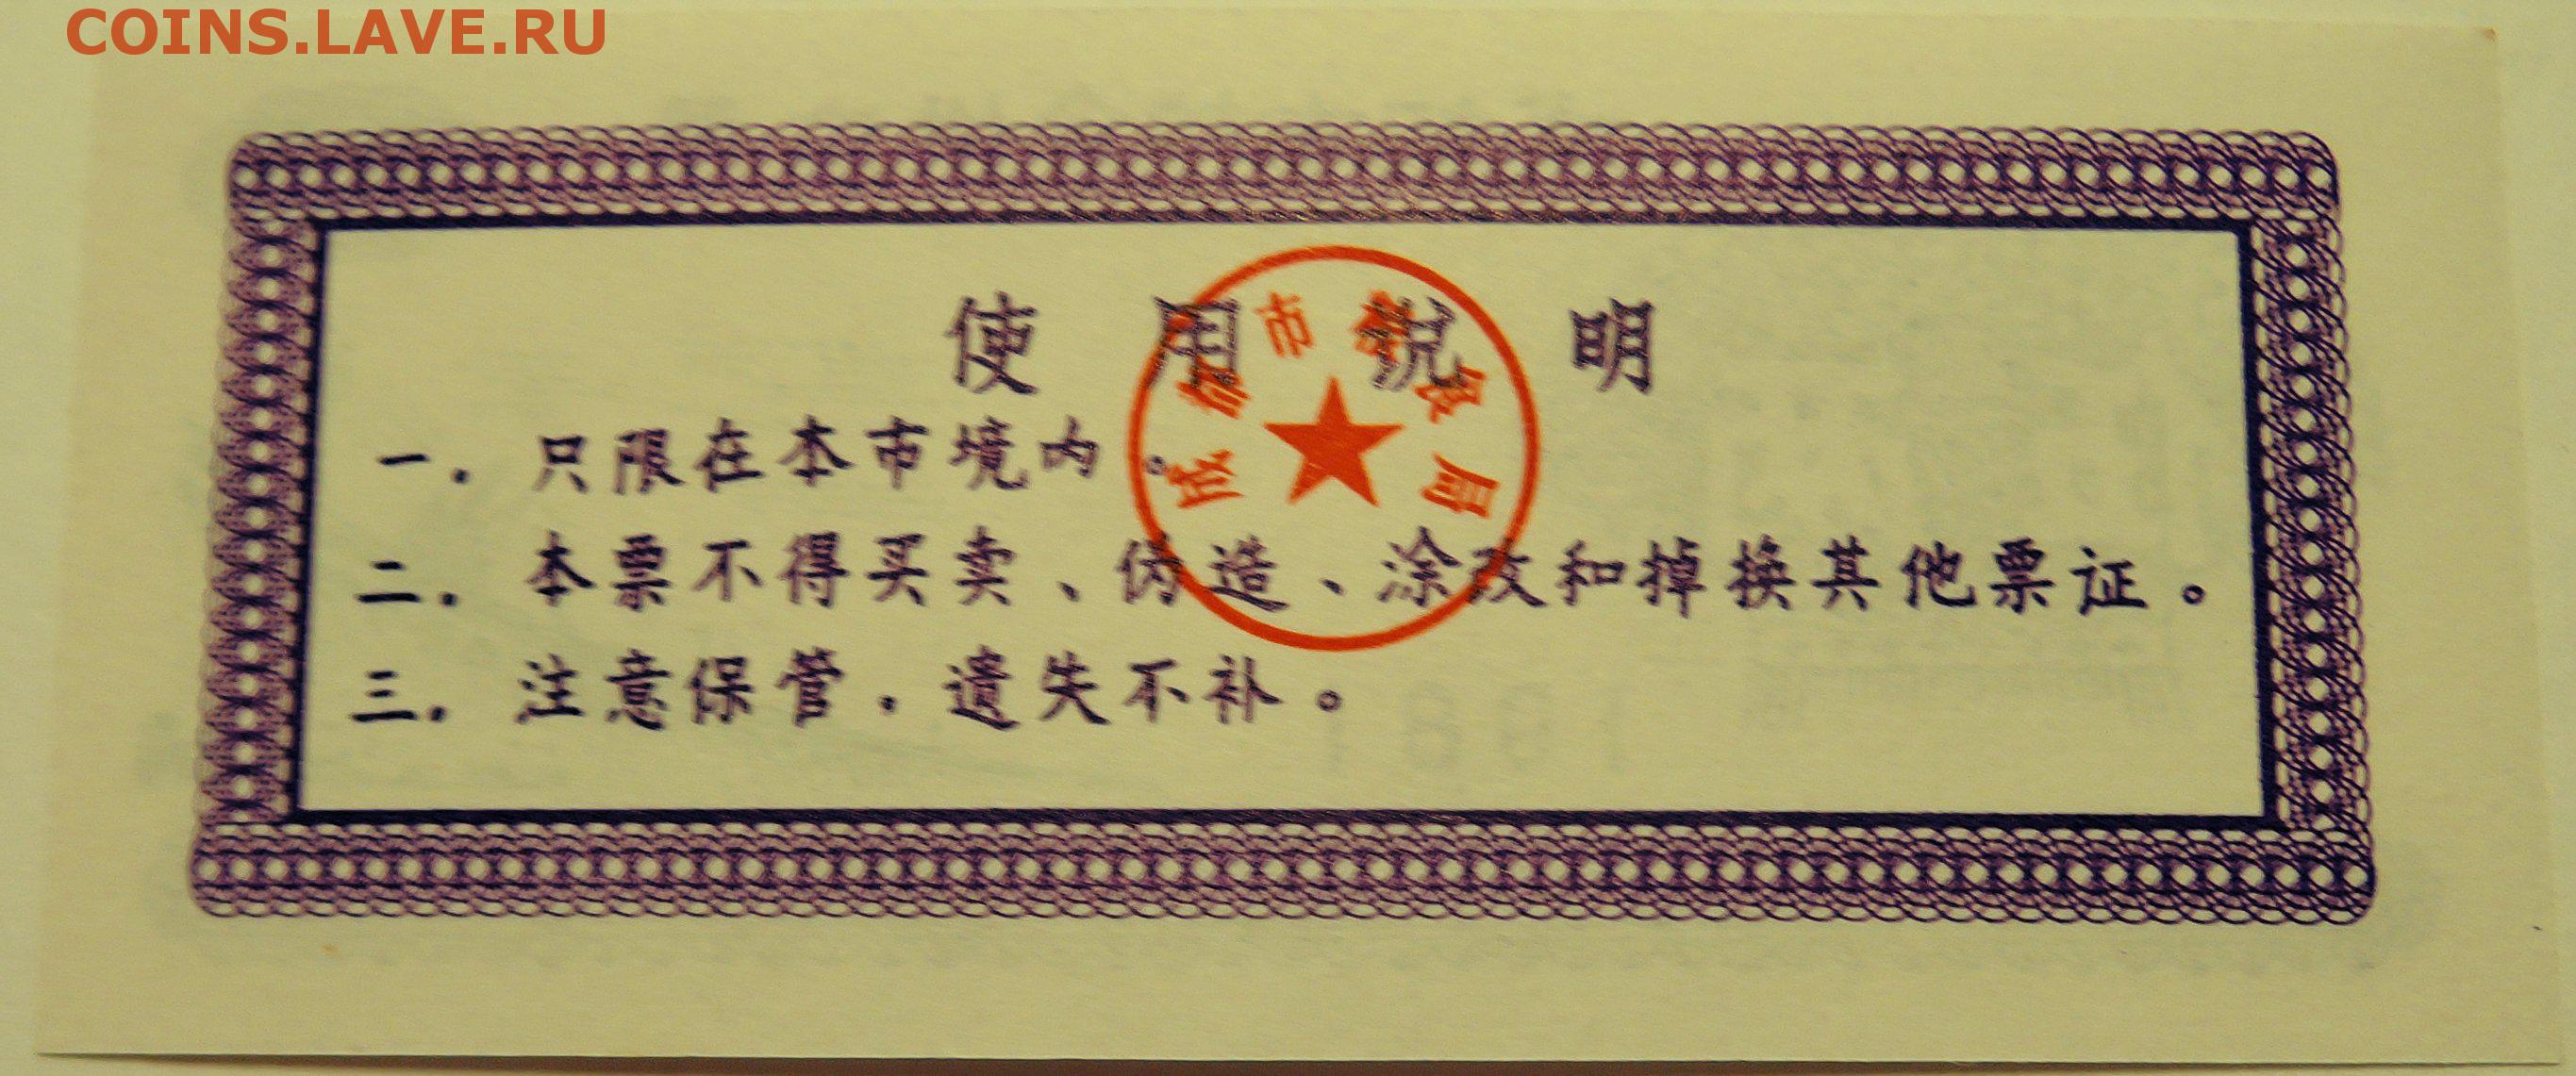 COINS.LAVE.RU
使用说明
一．只限在本市境内。
二．本票不得买卖、伪造、涂改和掉换其他票证。
三．注意保管．遗失不补。
市 局
1981